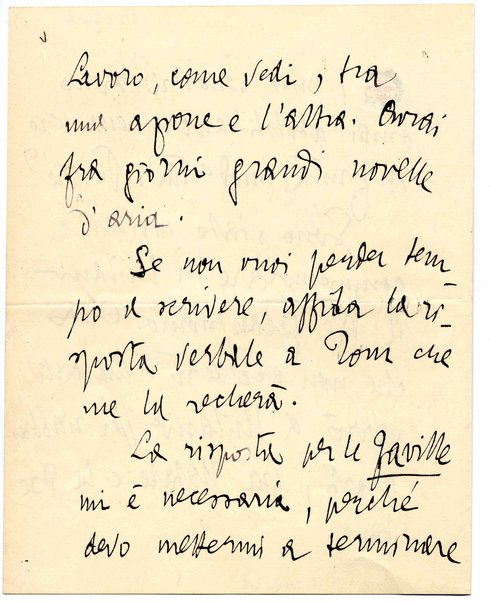 Lavoro, come vedi, tra
una azione e l'altra. Avrai
fra giorni grandi novelle
d'aria.
Se non vuoi perder tem-
po a scrivere, affida la ri-
sposta verbale a Tom che
me la recherà.
La risposta per le Faville
mi è necessaria, perché
devo mettermi a terminare